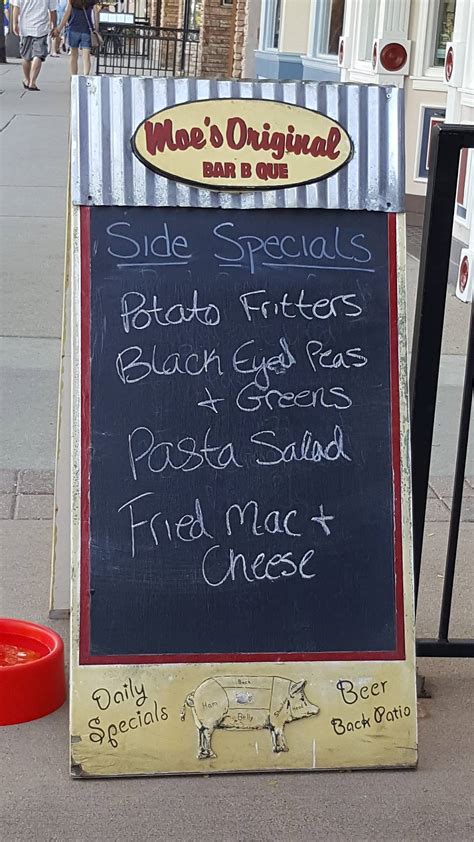 Moe's Original
BAR B QUE
Side Specials
Potato Fritters
Black Eyed Peas
+ Greens
Pasta Salad
Fried Mac +
Cheese
Daily
Specials
Back
Ham
Belly
Beer
Back Patio